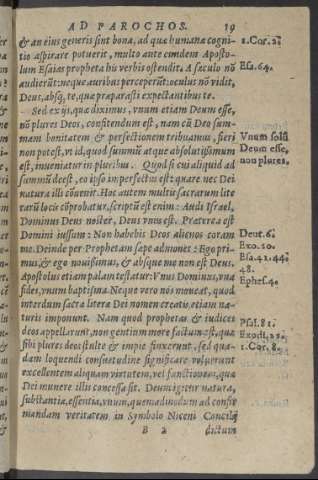 AD PAROCHOS. 19
& an eius generis sint bona, ad quæ humana cogni- 1. Cor. 2.
tio aspirare potuerit, multo ante eundem Aposto-
lum Esaias propheta his verbis ostendit, A sæculo nō Esa. 64.
audierūt: neque auribus perceperūt: oculus nō vidit,
Deus, absq́; te, quæ præparasti expectantibus te.
Sed ex ijs, quæ diximus, vnum etiam Deum esse,
nō plures Deos, confitendum est, nam cū Deo sum-
mam bonitatem & perfectionem tribuamus, fieri Vnum solū
non potest, vt id, quod summū atque absolutissimum Deum esse,
est, inueniatur in pluribus. Quòd si cui aliquid ad non plures.
summū deest, eo ipso imperfectus est: quare nec Dei
natura illi cōuenit. Hoc autem multis sacrarum lite
rarū locis cōprobatur, scriptū est enim: Audi Israel,
Dominus Deus noster, Deus vnus est. Præterea est
Domini iussum: Non habebis Deos alienos coram Deut. 6.
me. Deinde per Prophetam sæpe admonet: Ego pri- Exo. 20.
mus, & ego nouissimus, & absque me non est Deus. Esa. 41. 44.
48.
Apostolus etiam palam testatur: Vnus Dominus, vna
fides, vnum baptisma. Neque verò nos moueat, quod Ephes. 4.
interdum sacræ literæ Dei nomen creatis etiam na-
turis imponunt. Nam quod prophetas & iudices Psal. 81.
deos appellarunt, non gentium more factum est, quæ Exod. 22.
sibi plures deos stultè & impiè finxerunt, sed qua- 1. Cor. 8.
dam loquendi consuetudine significare voluerunt
excellentem aliquam virtutem, vel functionem, quæ
Dei munere illis concessa sit. Deum igitur natura,
substantia, essentia, vnum, quemadmodum ad confir
mandam veritatem in Symbolo Niceni Concilij
B 2 dictum